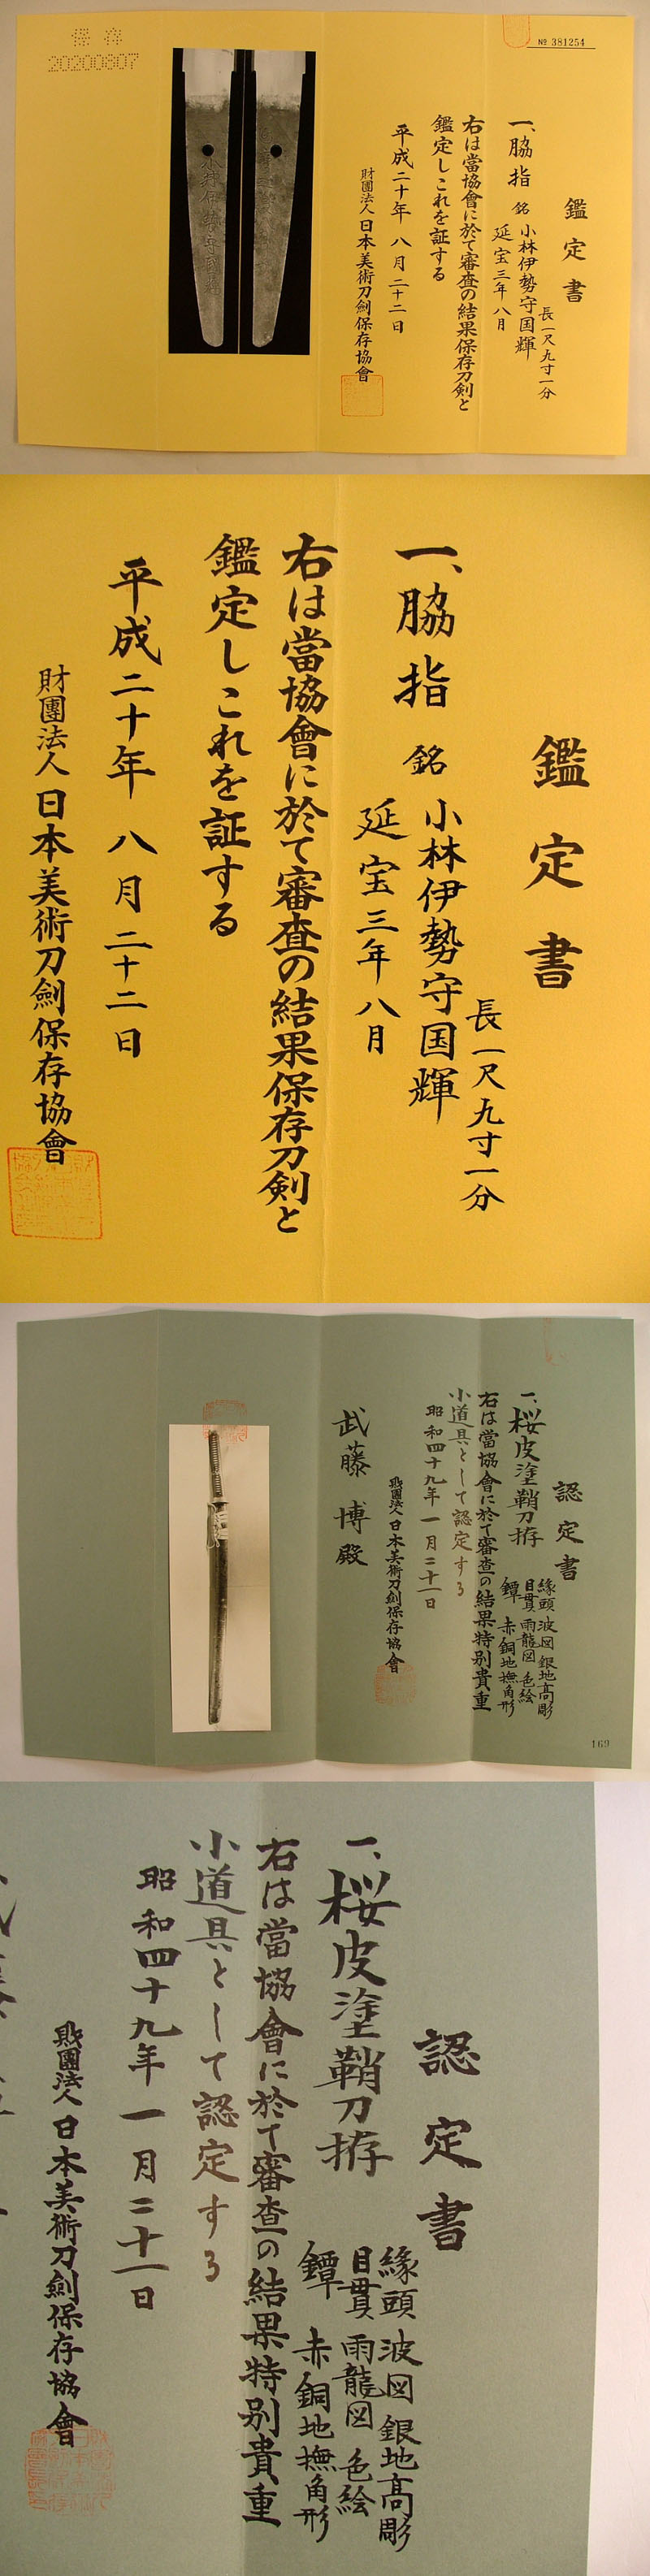 保存
20200807
№ 381254
鑑定書
長一尺九寸一分
一、脇指 銘 小林伊勢守国輝
延宝三年八月
右は當協會に於て審査の結果保存刀剣と
鑑定しこれを証する
平成二十年 八月 二十二日
財團法人 日本美術刀劍保存協會
鑑定書
長一尺九寸一分
一、脇指 銘 小林伊勢守国輝
延宝三年八月
右は當協會に於て審査の結果保存刀剣と
鑑定しこれを証する
平成二十年 八月 二十二日
財團法人 日本美術刀劍保存協會
認定書
一、桜皮塗鞘刀拵
縁頭 波図 銀地高彫
目貫 雨龍図 色絵
鐔 赤銅地撫角形
右は當協會に於て審査の結果特別貴重
小道具として認定する
昭和四十九年 一月二十一日
財團法人 日本美術刀劍保存協會
武藤 博殿
169
認定書
一、桜皮塗鞘刀拵
縁頭 波図 銀地高彫
目貫 雨龍図 色絵
鐔 赤銅地撫角形
右は當協會に於て審査の結果特別貴重
小道具として認定する
昭和四十九年 一月二十一日
財團法人 日本美術刀劍保存協會